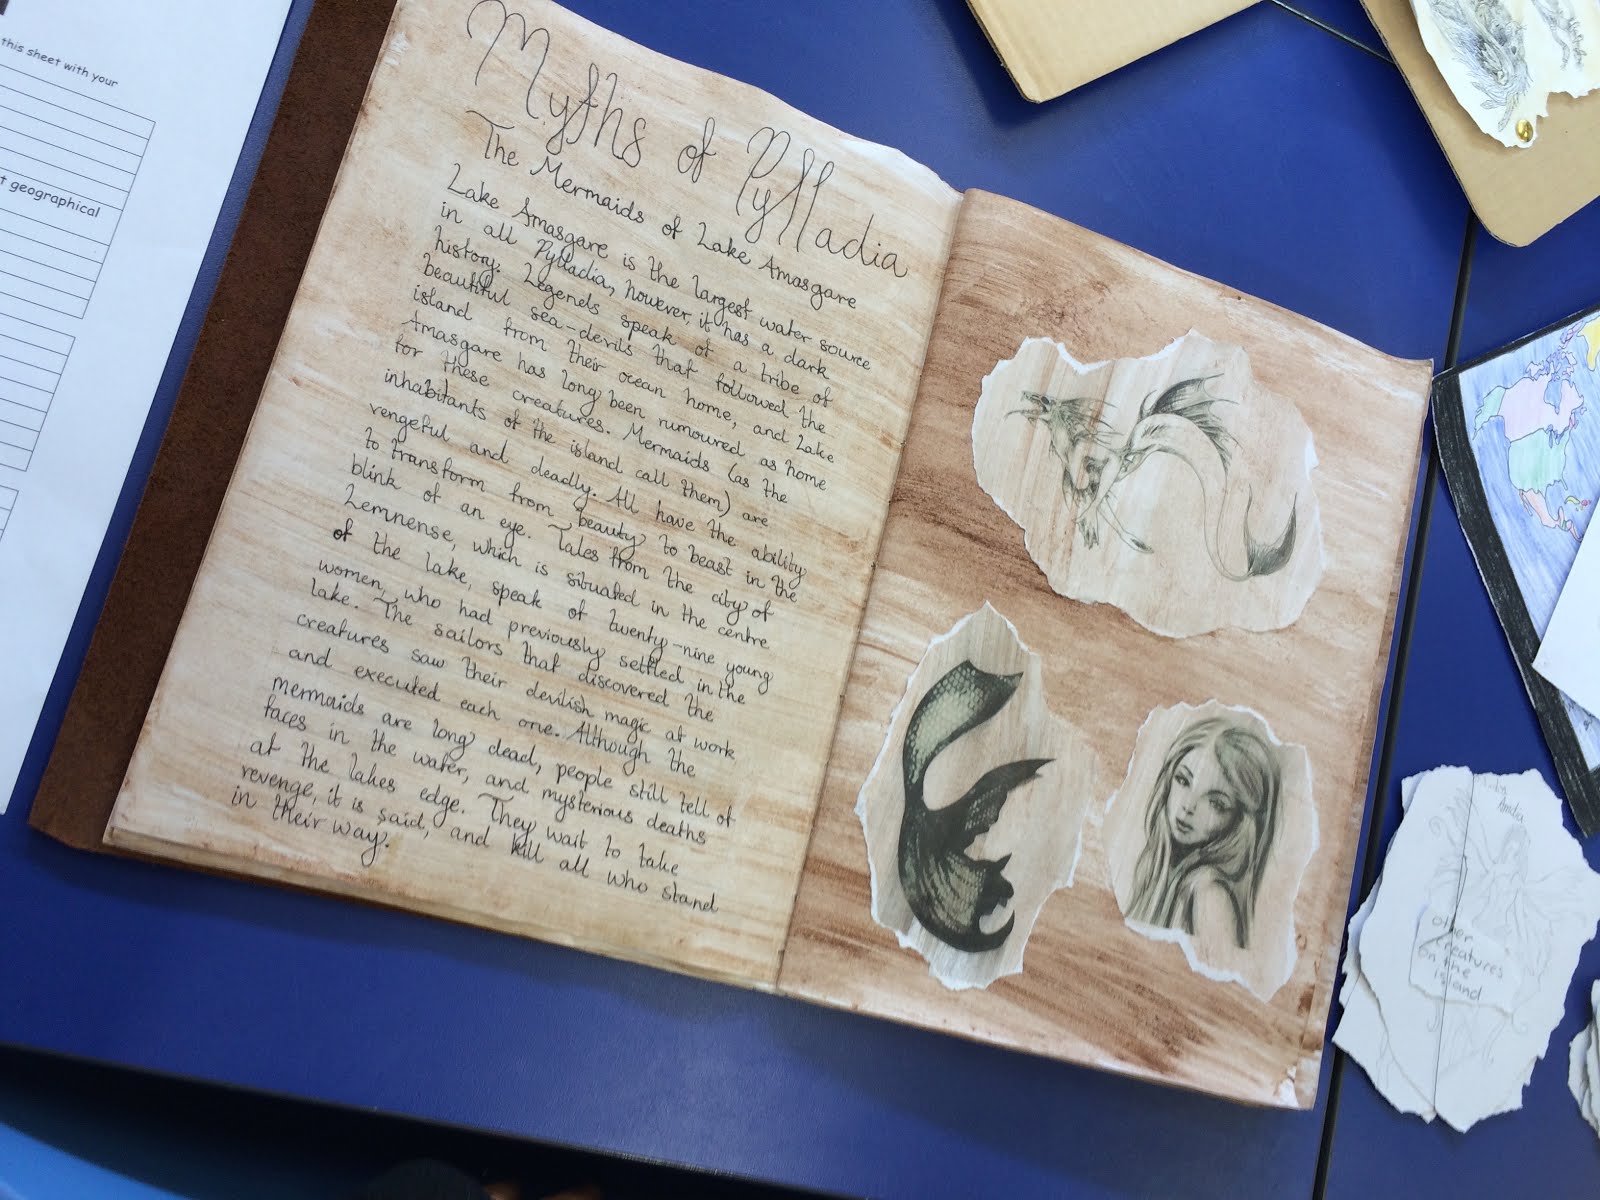 this sheet with your
geographical
Myths of Pylladia
The Mermaids of Lake Amasgare
Lake Amasgare is the largest water source
in all Pylladia, however, it has a dark
history. Legends speak of a tribe of
beautiful sea-devils that followed the
island from their ocean home, and Lake
Amasgare has long been rumoured as home
for these creatures. Mermaids (as the
inhabitants of the island call them) are
vengeful and deadly. All have the ability
to transform from beauty to beast in the
blink of an eye. Tales from the city of
Lemnense, which is situated in the centre
of the lake, speak of twenty-nine young
women, who had previously settled in the
lake. The sailors that discovered the
creatures saw their devilish magic at work
and executed each one. Although the
mermaids are long dead, people still tell of
faces in the water, and mysterious deaths
at the lakes edge. They wait to take
revenge, it is said, and kill all who stand
in their way.
other
creatures
on the
island